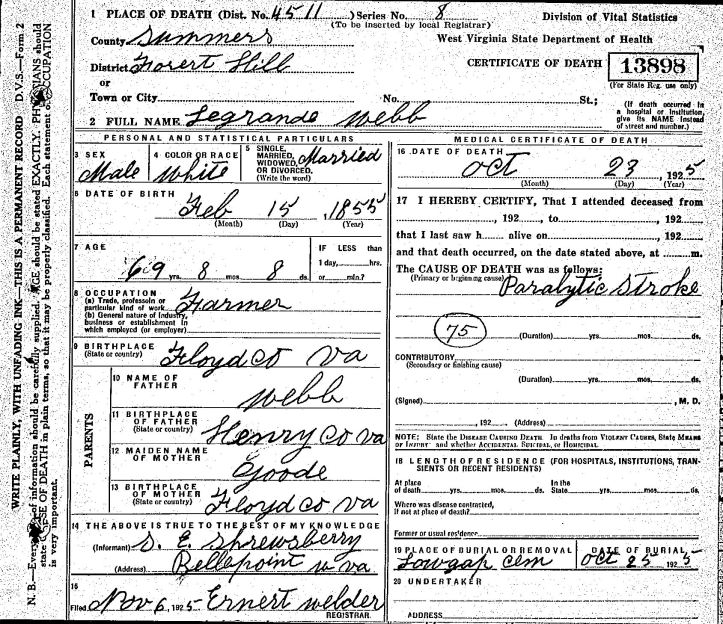 1 PLACE OF DEATH (Dist. No. 4511 ) Series No. 8
(To be inserted by local Registrar)
Division of Vital Statistics
County Summers
West Virginia State Department of Health
District Forest Hill
CERTIFICATE OF DEATH
13898
(For State Reg. use only)
or
Town or City No. St.;
(If death occurred in a hospital or institution, give its NAME instead of street and number.)
2 FULL NAME Legrande Webb
PERSONAL AND STATISTICAL PARTICULARS
3 SEX
Male
4 COLOR OR RACE
White
5 SINGLE, MARRIED, WIDOWED, OR DIVORCED. (Write the word)
Married
6 DATE OF BIRTH
Feb 15 , 1855
(Month) (Day) (Year)
7 AGE
69 yrs. 8 mos. 8 ds.
IF LESS than
1 day, hrs.
or min.?
8 OCCUPATION
(a) Trade, profession or particular kind of work
Farmer
(b) General nature of industry, business or establishment in which employed (or employer)
9 BIRTHPLACE
(State or country)
Floyd Co Va
PARENTS
10 NAME OF FATHER
Webb
11 BIRTHPLACE OF FATHER
(State or country)
Henry Co Va
12 MAIDEN NAME OF MOTHER
Goode
13 BIRTHPLACE OF MOTHER
(State or country)
Floyd Co Va
14 THE ABOVE IS TRUE TO THE BEST OF MY KNOWLEDGE
(Informant) S. E. Shrewsberry
(Address) Bellepoint W Va
15
Filed Nov 6, 1925 Ernert Welder
REGISTRAR.
MEDICAL CERTIFICATE OF DEATH
16 DATE OF DEATH
Oct 23 , 1925
(Month) (Day) (Year)
17 I HEREBY CERTIFY, That I attended deceased from
, 192 , to , 192
that I last saw h alive on , 192
and that death occurred, on the date stated above, at m.
The CAUSE OF DEATH was as follows:
(Primary or beginning cause)
Paralytic Stroke
75
(Duration) yrs. mos. ds.
CONTRIBUTORY
(Secondary or finishing cause)
(Duration) yrs. mos. ds.
(Signed) , M. D.
, 192 (Address)
NOTE: State the DISEASE CAUSING DEATH. In deaths from VIOLENT CAUSES, State MEANS OF INJURY and whether ACCIDENTAL, SUICIDAL, or HOMICIDAL.
18 LENGTH OF RESIDENCE (FOR HOSPITALS, INSTITUTIONS, TRANSIENTS OR RECENT RESIDENTS)
At place of death yrs. mos. ds. In the State yrs. mos. ds.
Where was disease contracted, if not at place of death?
Former or usual residence
19 PLACE OF BURIAL OR REMOVAL
Lowgap Cem
DATE OF BURIAL
Oct 25 1925
20 UNDERTAKER
ADDRESS
WRITE PLAINLY, WITH UNFADING INK—THIS IS A PERMANENT RECORD D.V.S.—Form 2
N. B.—Every of information should be carefully supplied. AGE should be stated EXACTLY. PHYSICIANS should
state CAUSE OF DEATH in plain terms, so that it may be properly classified. Each statement of OCCUPATION
is very important.